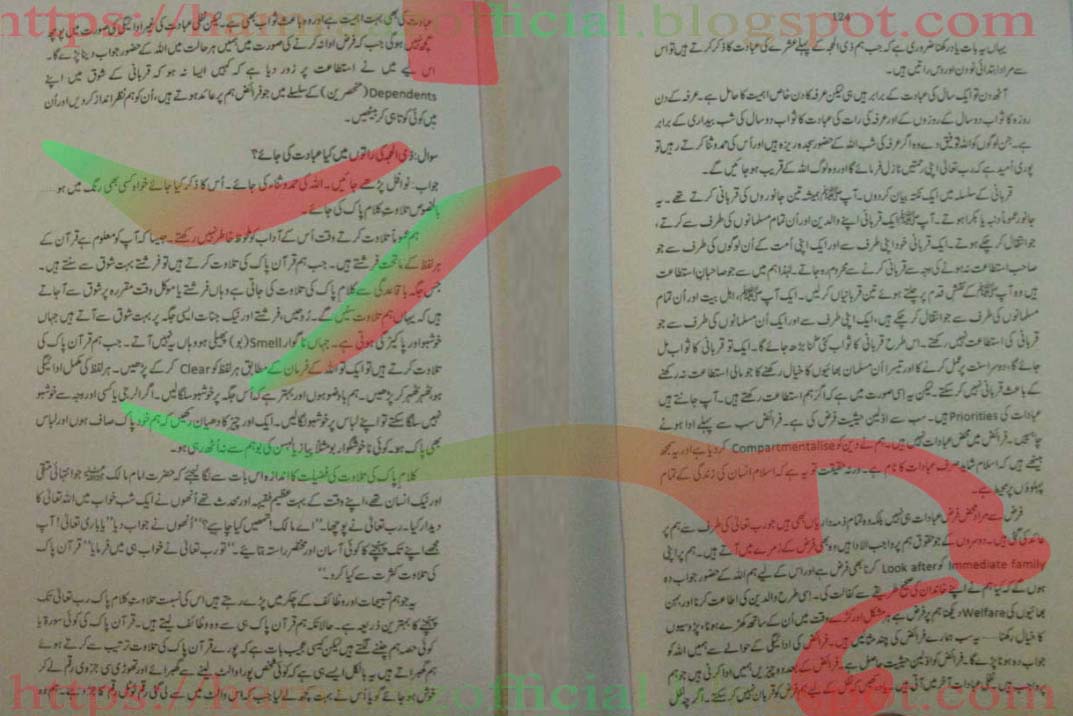 124
یہاں یہ بات یاد رکھنا ضروری ہے کہ جب ہم ذی الحجہ کے پہلے عشرے کی عبادت کا ذکر کرتے ہیں تو اس
سے مراد ابتدائی نو دن اور دس راتیں ہیں۔
آٹھ دن تو ایک سال کی عبادت کے برابر ہیں ہی لیکن عرفہ کا دن خاص اہمیت کا حامل ہے۔ عرفہ کے دن
روزہ کا ثواب دو سال کے روزوں کے اور عرفہ کی رات کی عبادت کا ثواب دو سال کی شب بیداری کے برابر
ہے۔ جن لوگوں کو اللہ توفیق دے وہ اگر عرفہ کی شب اللہ کے حضور سجدہ ریز رہیں اور اُس کی حمد و ثنا کرتے رہیں تو
پوری امید ہے کہ رب تعالیٰ اپنی رحمتیں نازل فرمائے گا اور وہ لوگ اللہ کے قریب ہو جائیں گے۔
قربانی کے سلسلہ میں ایک نکتہ بیان کر دوں۔ آپ ﷺ ہمیشہ تین جانوروں کی قربانی کرتے تھے۔ یہ
جانور عموماً دنبہ یا بکرا ہوتے۔ آپ ﷺ ایک قربانی اپنے والدین اور اُن تمام مسلمانوں کی طرف سے کرتے،
جو انتقال کر چکے ہوتے۔ ایک قربانی خود اپنی طرف سے اور ایک اپنی اُمت کے اُن لوگوں کی طرف سے جو
صاحب استطاعت نہ ہونے کی وجہ سے قربانی کرنے سے محروم رہ جاتے۔ لہٰذا ہم میں سے جو صاحبانِ استطاعت
ہیں وہ آپ ﷺ کے نقش قدم پر چلتے ہوئے تین قربانیاں کر لیں۔ ایک آپ ﷺ، اہل بیت اور اُن تمام
مسلمانوں کی طرف سے جو انتقال کر چکے ہیں، ایک اپنی طرف سے اور ایک اُن مسلمانوں کی طرف سے جو
قربانی کی استطاعت نہیں رکھتے۔ اس طرح قربانی کا ثواب کئی گنا بڑھ جائے گا۔ ایک تو قربانی کا ثواب مل
جائے گا، دوسرا سنت پر عمل کرنے کا اور تیسرا اُن مسلمان بھائیوں کا خیال رکھنے کا جو مالی استطاعت نہ رکھنے
کے باعث قربانی نہیں کر سکتے۔ لیکن یہ اسی صورت میں ہے کہ اگر ہم استطاعت رکھتے ہیں۔ آپ جانتے ہیں
عبادات کی Priorities ہیں۔ سب سے اوّلین حیثیت فرض کی ہے۔ فرائض سب سے پہلے ادا ہونے
چاہئیں۔ فرائض میں محض عبادات نہیں ہیں۔ ہم نے دین کو Compartmentalise کر دیا ہے اور یہ سمجھ
بیٹھے ہیں کہ اسلام شاید صرف عبادات کا نام ہے۔ ورنہ حقیقت تو یہ ہے کہ اسلام انسان کی زندگی کے تمام
پہلوؤں پر محیط ہے۔
فرض سے مراد محض فرض عبادات ہی نہیں بلکہ وہ تمام ذمہ داریاں بھی ہیں جو رب تعالیٰ کی طرف سے ہم پر
عائد کی گئی ہیں۔ دوسروں کے جو حقوق ہم پر واجب الادا ہیں وہ بھی فرض کے زمرے میں آتے ہیں۔ ہم پر اپنی
Immediate family کو Look after کرنا بھی فرض ہے اور اس کے لیے ہم اللہ کے حضور جواب دہ
ہوں گے کہ کیا ہم نے اپنے خاندان کی صحیح طریقے سے کفالت کی۔ اسی طرح والدین کی اطاعت کرنا اور بہن
بھائیوں کی Welfare دیکھنا ہم پر فرض ہے ہر مشکل اور کڑے وقت میں اُن کے ساتھ کھڑے ہونا، پڑوسیوں
کا خیال رکھنا ــــ یہ سب ہمارے فرائض کی چند مثالیں ہیں۔ فرائض کی ادائیگی کے حوالے سے ہمیں اللہ کو
جواب دہ ہونا پڑے گا۔ فرائض کو اوّلین حیثیت حاصل ہے۔ فرائض کے بعد وہ چیزیں ہمیں ادا کرنی ہیں جو ہم
پر واجب ہیں۔ نفلی عبادات آخر میں آتی ہیں۔ یاد رکھیے کہ نفل کے لیے ہم فرض کو قربان نہیں کر سکتے۔ اگرچہ نفلی
عبادت کی بھی بہت اہمیت ہے اور وہ باعث ثواب بھی ہے۔ لیکن نفلی عبادت کی غیر ادائیگی کی صورت میں پوچھ
گچھ نہیں ہوگی جب کہ فرض ادا نہ کرنے کی صورت میں ہمیں ہر حالت میں اللہ کے حضور جواب دینا پڑے گا۔
اس لیے میں نے استطاعت پر زور دیا ہے کہ کہیں ایسا نہ ہو کہ قربانی کے شوق میں اپنے
Dependents (منحصرین) کے سلسلے میں جو فرائض ہم پر عائد ہوتے ہیں، اُن کو ہم نظر انداز کر دیں اور اُن
میں کوئی کوتاہی کر بیٹھیں۔
سوال: ذی الحجہ کی راتوں میں کیا عبادت کی جائے؟
جواب: نوافل پڑھے جائیں۔ اللہ کی حمد و ثناء کی جائے۔ اُس کا ذکر کیا جائے خواہ کسی بھی رنگ میں ہو
بالخصوص تلاوتِ کلام پاک کی جائے۔
ہم عموماً تلاوت کرتے وقت اُس کے آداب کو ملحوظ خاطر نہیں رکھتے۔ جیسا کہ آپ کو معلوم ہے قرآن کے
ہر لفظ کے ماتحت فرشتے ہیں۔ جب ہم قرآن پاک کی تلاوت کرتے ہیں تو فرشتے بہت شوق سے سنتے ہیں۔
جس جگہ باقاعدگی سے کلام پاک کی تلاوت کی جاتی ہے وہاں فرشتے یا موکل وقت مقررہ پر شوق سے آ جاتے
ہیں کہ یہاں ہم تلاوت سنیں گے۔ رُوحیں، فرشتے اور نیک جنات ایسی جگہ پر بہت شوق سے آتے ہیں جہاں
خوشبو اور پاکیزگی ہوتی ہے۔ جہاں ناگوار Smell (بو) پھیلی ہو وہاں یہ نہیں آتے۔ جب ہم قرآن پاک کی
تلاوت کرتے ہیں تو ایک تو اللہ کے فرمان کے مطابق ہر لفظ کو Clear کر کے پڑھیں۔ ہر لفظ کی مکمل ادائیگی
ہو، ٹھہر ٹھہر کر پڑھیں۔ ہم باوضو ہوں اور بہتر ہے کہ اُس جگہ پر خوشبو سلگا لیں۔ اگر الرجی یا کسی اور وجہ سے خوشبو
نہیں سلگا سکتے تو اپنے لباس پر خوشبو لگا لیں۔ ایک اور چیز کا دھیان رکھیں کہ ہم خود پاک صاف ہوں اور لباس
بھی پاک ہو۔ کوئی ناخوشگوار بو مثلاً پیاز یا لہسن کی بو ہم سے نہ اُٹھ رہی ہو۔
کلام پاک کی تلاوت کی فضیلت کا اندازہ اس بات سے لگا لیجئے کہ حضرت امام مالکؒ جو انتہائی متقی
اور نیک انسان تھے، اپنے وقت کے بہت عظیم فقیہہ اور محدث تھے اُنھوں نے ایک شب خواب میں اللہ تعالیٰ کا
دیدار کیا۔ رب تعالیٰ نے پوچھا۔ ''اے مالک! تمھیں کیا چاہیے؟'' اُنھوں نے جواب دیا ''یا باری تعالیٰ! آپ
مجھے اپنے تک پہنچنے کا کوئی آسان اور مختصر راستہ بتائیے۔'' تو رب تعالیٰ نے خواب ہی میں فرمایا ''قرآن پاک
کی تلاوت کثرت سے کیا کرو۔''
یہ جو ہم تسبیحات اور وظائف کے چکر میں پڑے رہتے ہیں اس کی نسبت تلاوتِ کلام پاک رب تعالیٰ تک
پہنچنے کا بہترین ذریعہ ہے۔ حالانکہ ہم قرآن پاک ہی سے وہ وظائف لیتے ہیں۔ قرآن پاک کی کوئی سورۃ یا
کوئی حصہ ہم چُنتے ہیں لیکن کیسی عجیب بات ہے کہ پورے قرآن پاک کی تلاوت ترتیب سے کرتے ہوئے
ہم گھبراتے ہیں یہ بالکل ایسے ہی ہے کہ کوئی شخص پورا والٹ لینے سے گھبرائے اور تھوڑی سی جزوی رقم لے کر
خوش ہو جائے
official.blogspot.com